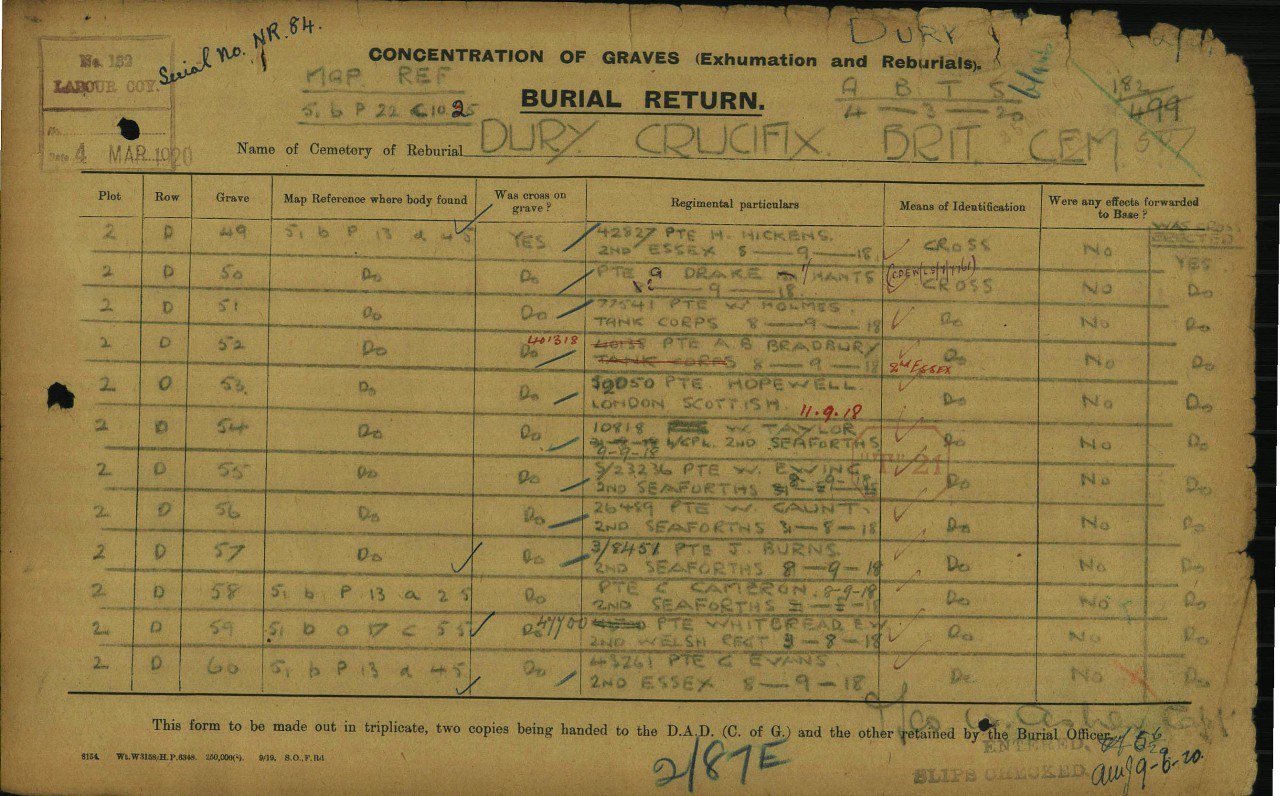 No. 132
LABOUR COY.
No.
Date 4 MAR 1920
Serial No. NR.84.
DURY
CONCENTRATION OF GRAVES (Exhumation and Reburials).
MAP REF
51 b P 22 C 10.25
BURIAL RETURN.
A B T S
4 — 3 — 20
182
499
Name of Cemetery of Reburial DURY CRUCIFIX BRIT. CEM
Plot Row Grave Map Reference where body found Was cross on grave? Regimental particulars Means of Identification Were any effects forwarded to Base? WAS CROSS ERECTED
2 D 49 51 b P 13 a 45 YES 42827 PTE H. HICKENS. CROSS No YES
2ND ESSEX 8 — 9 — 18.
2 D 50 Do Do PTE G DRAKE 1/HANTS CROSS No Do
9 — 18
2 D 51 Do Do 77541 PTE W. HOLMES. Do No Do
TANK CORPS 8 — 9 — 18
2 D 52 Do Do 401318 40138 PTE A B BRADBURY Do No Do
TANK CORPS 8 — 9 — 18 2nd ESSEX
2 D 53. Do Do PTE. HOPEWELL. Do No Do
LONDON SCOTTISH. 11.9.18
2 D 54 Do Do 10818 W. TAYLOR Do No Do
L/CPL. 2ND SEAFORTHS
9-9-18
2 D 55 Do Do S/23236 PTE W. EWING Do No Do
2ND SEAFORTHS
2 D 56 Do Do 26459 PTE W. GAUNT. Do No Do
2ND SEAFORTHS 31 - 8 - 18
2 D 57 Do Do 3/8451 PTE J. BURNS. Do No Do
2ND SEAFORTHS 8 — 9 - 18
2 D 58 51 b P 13 a 25 Do PTE C CAMERON. 8-9-18 Do No Do
2ND SEAFORTHS
2 D 59 51 b O 17 C 55 Do 47700 PTE WHITBREAD E.W. Do No Do
2ND WELSH REGT 3 - 8 - 18
2 D 60 51 b P 13 a 45 Do 43261 PTE G EVANS. Do No Do
2ND ESSEX 8 — 9 - 18
This form to be made out in triplicate, two copies being handed to the D.A.D. (C. of G.) and the other retained by the Burial Officer.
6154. Wt.W3158/H.P.6348. 250,000(2). 9/19. S.O.,F.Rd
2/87E
ENTERED.
SLIPS CHECKED. 9-6-20.